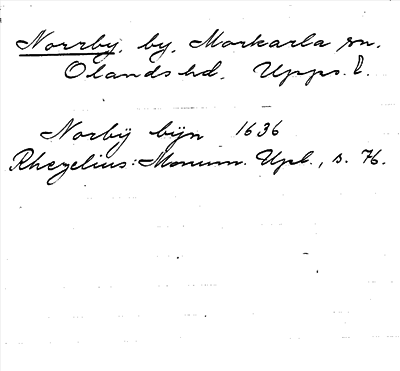 Norrby, by, Morkarla sn.
Olands hd. Upps. l.
Norbÿ bijn 1636
Rhezelius: Monum. Upl., s. 76.